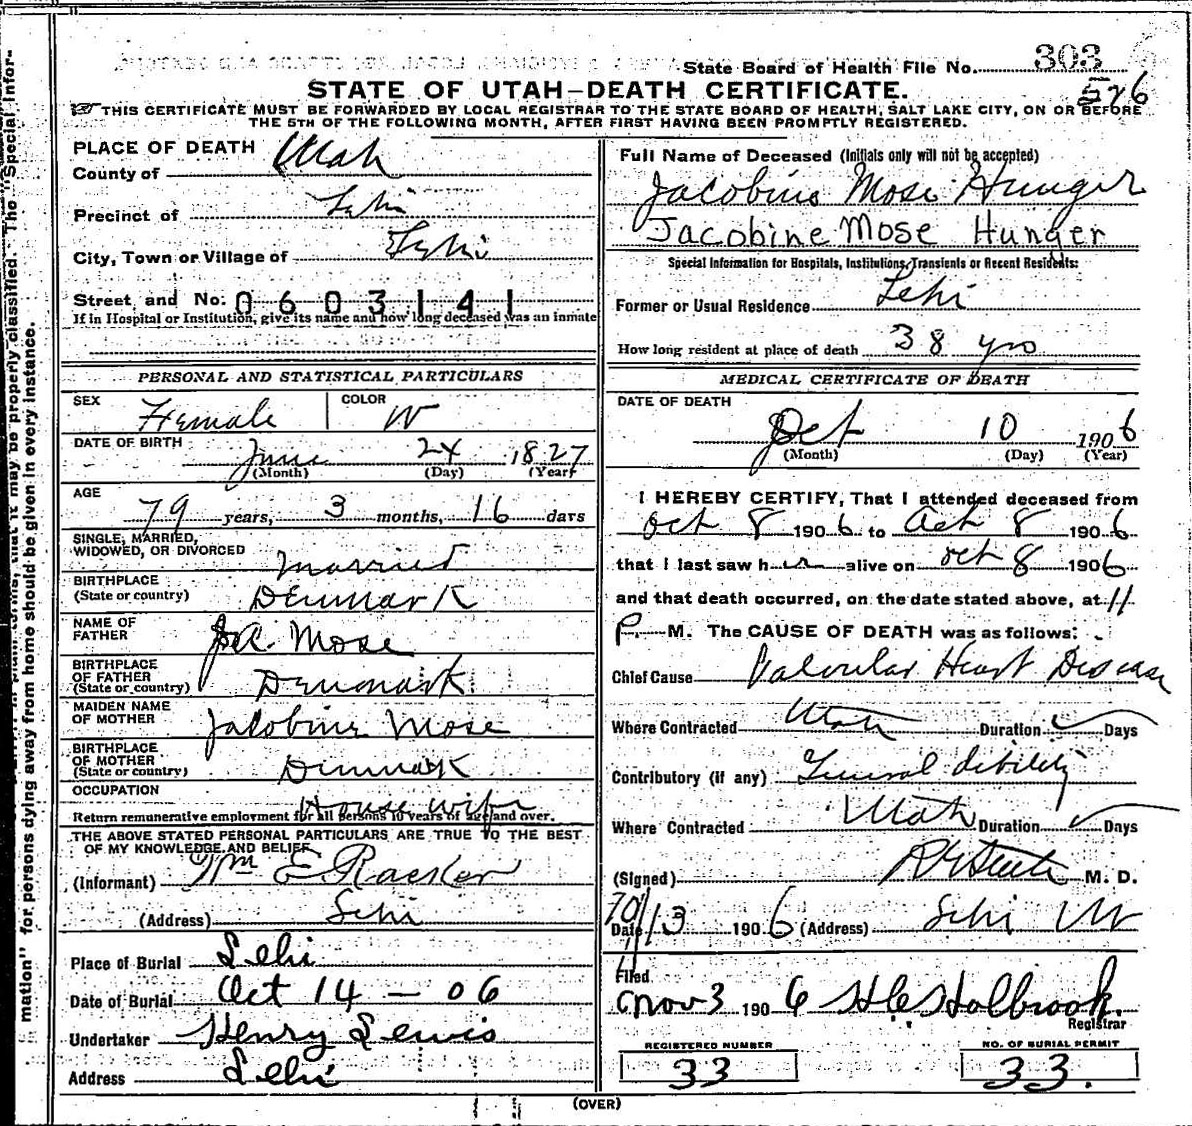 mation" for persons dying away from home should be given in every instance.
that it may be properly classified. The "Special Infor-
State Board of Health File No. 303
526
STATE OF UTAH—DEATH CERTIFICATE.
THIS CERTIFICATE MUST BE FORWARDED BY LOCAL REGISTRAR TO THE STATE BOARD OF HEALTH, SALT LAKE CITY, ON OR BEFORE
THE 5TH OF THE FOLLOWING MONTH, AFTER FIRST HAVING BEEN PROMPTLY REGISTERED.
PLACE OF DEATH
County of Utah
Precinct of Lehi
City, Town or Village of Lehi
Street and No. 0603141
If in Hospital or Institution, give its name and how long deceased was an inmate
PERSONAL AND STATISTICAL PARTICULARS
SEX Female COLOR W
DATE OF BIRTH June 24 1827
(Month) (Day) (Year)
AGE
79 years, 3 months, 16 days
SINGLE, MARRIED,
WIDOWED, OR DIVORCED Married
BIRTHPLACE
(State or country) Denmark
NAME OF
FATHER Mose
BIRTHPLACE
OF FATHER
(State or country) Denmark
MAIDEN NAME
OF MOTHER Jacobine Mose
BIRTHPLACE
OF MOTHER
(State or country) Denmark
OCCUPATION House wife
Return remunerative employment for all persons 10 years of age and over.
THE ABOVE STATED PERSONAL PARTICULARS ARE TRUE TO THE BEST
OF MY KNOWLEDGE AND BELIEF
(Informant) Wm E. Racker
(Address) Lehi
Place of Burial Lehi
Date of Burial Oct 14 — 06
Undertaker Henry Lewis
Address Lehi
Full Name of Deceased (Initials only will not be accepted)
Jacobine Mose Hunger
Jacobine Mose Hunger
Special Information for Hospitals, Institutions, Transients or Recent Residents:
Former or Usual Residence Lehi
How long resident at place of death 38 yrs
MEDICAL CERTIFICATE OF DEATH
DATE OF DEATH
Oct 10 1906
(Month) (Day) (Year)
I HEREBY CERTIFY, That I attended deceased from
Oct 8 1906 to Oct 8 1906
that I last saw her alive on Oct 8 1906
and that death occurred, on the date stated above, at 11
P. M. The CAUSE OF DEATH was as follows:
Chief Cause Valvular Heart Disease
Where Contracted Utah Duration Days
Contributory (if any) General debility
Where Contracted Utah Duration Days
(Signed) M. D.
Date 10/13 1906 (Address) Lehi Ut
Filed
Nov 3 1906 Holbrook
Registrar
REGISTERED NUMBER
33
NO. OF BURIAL PERMIT
33.
(OVER)